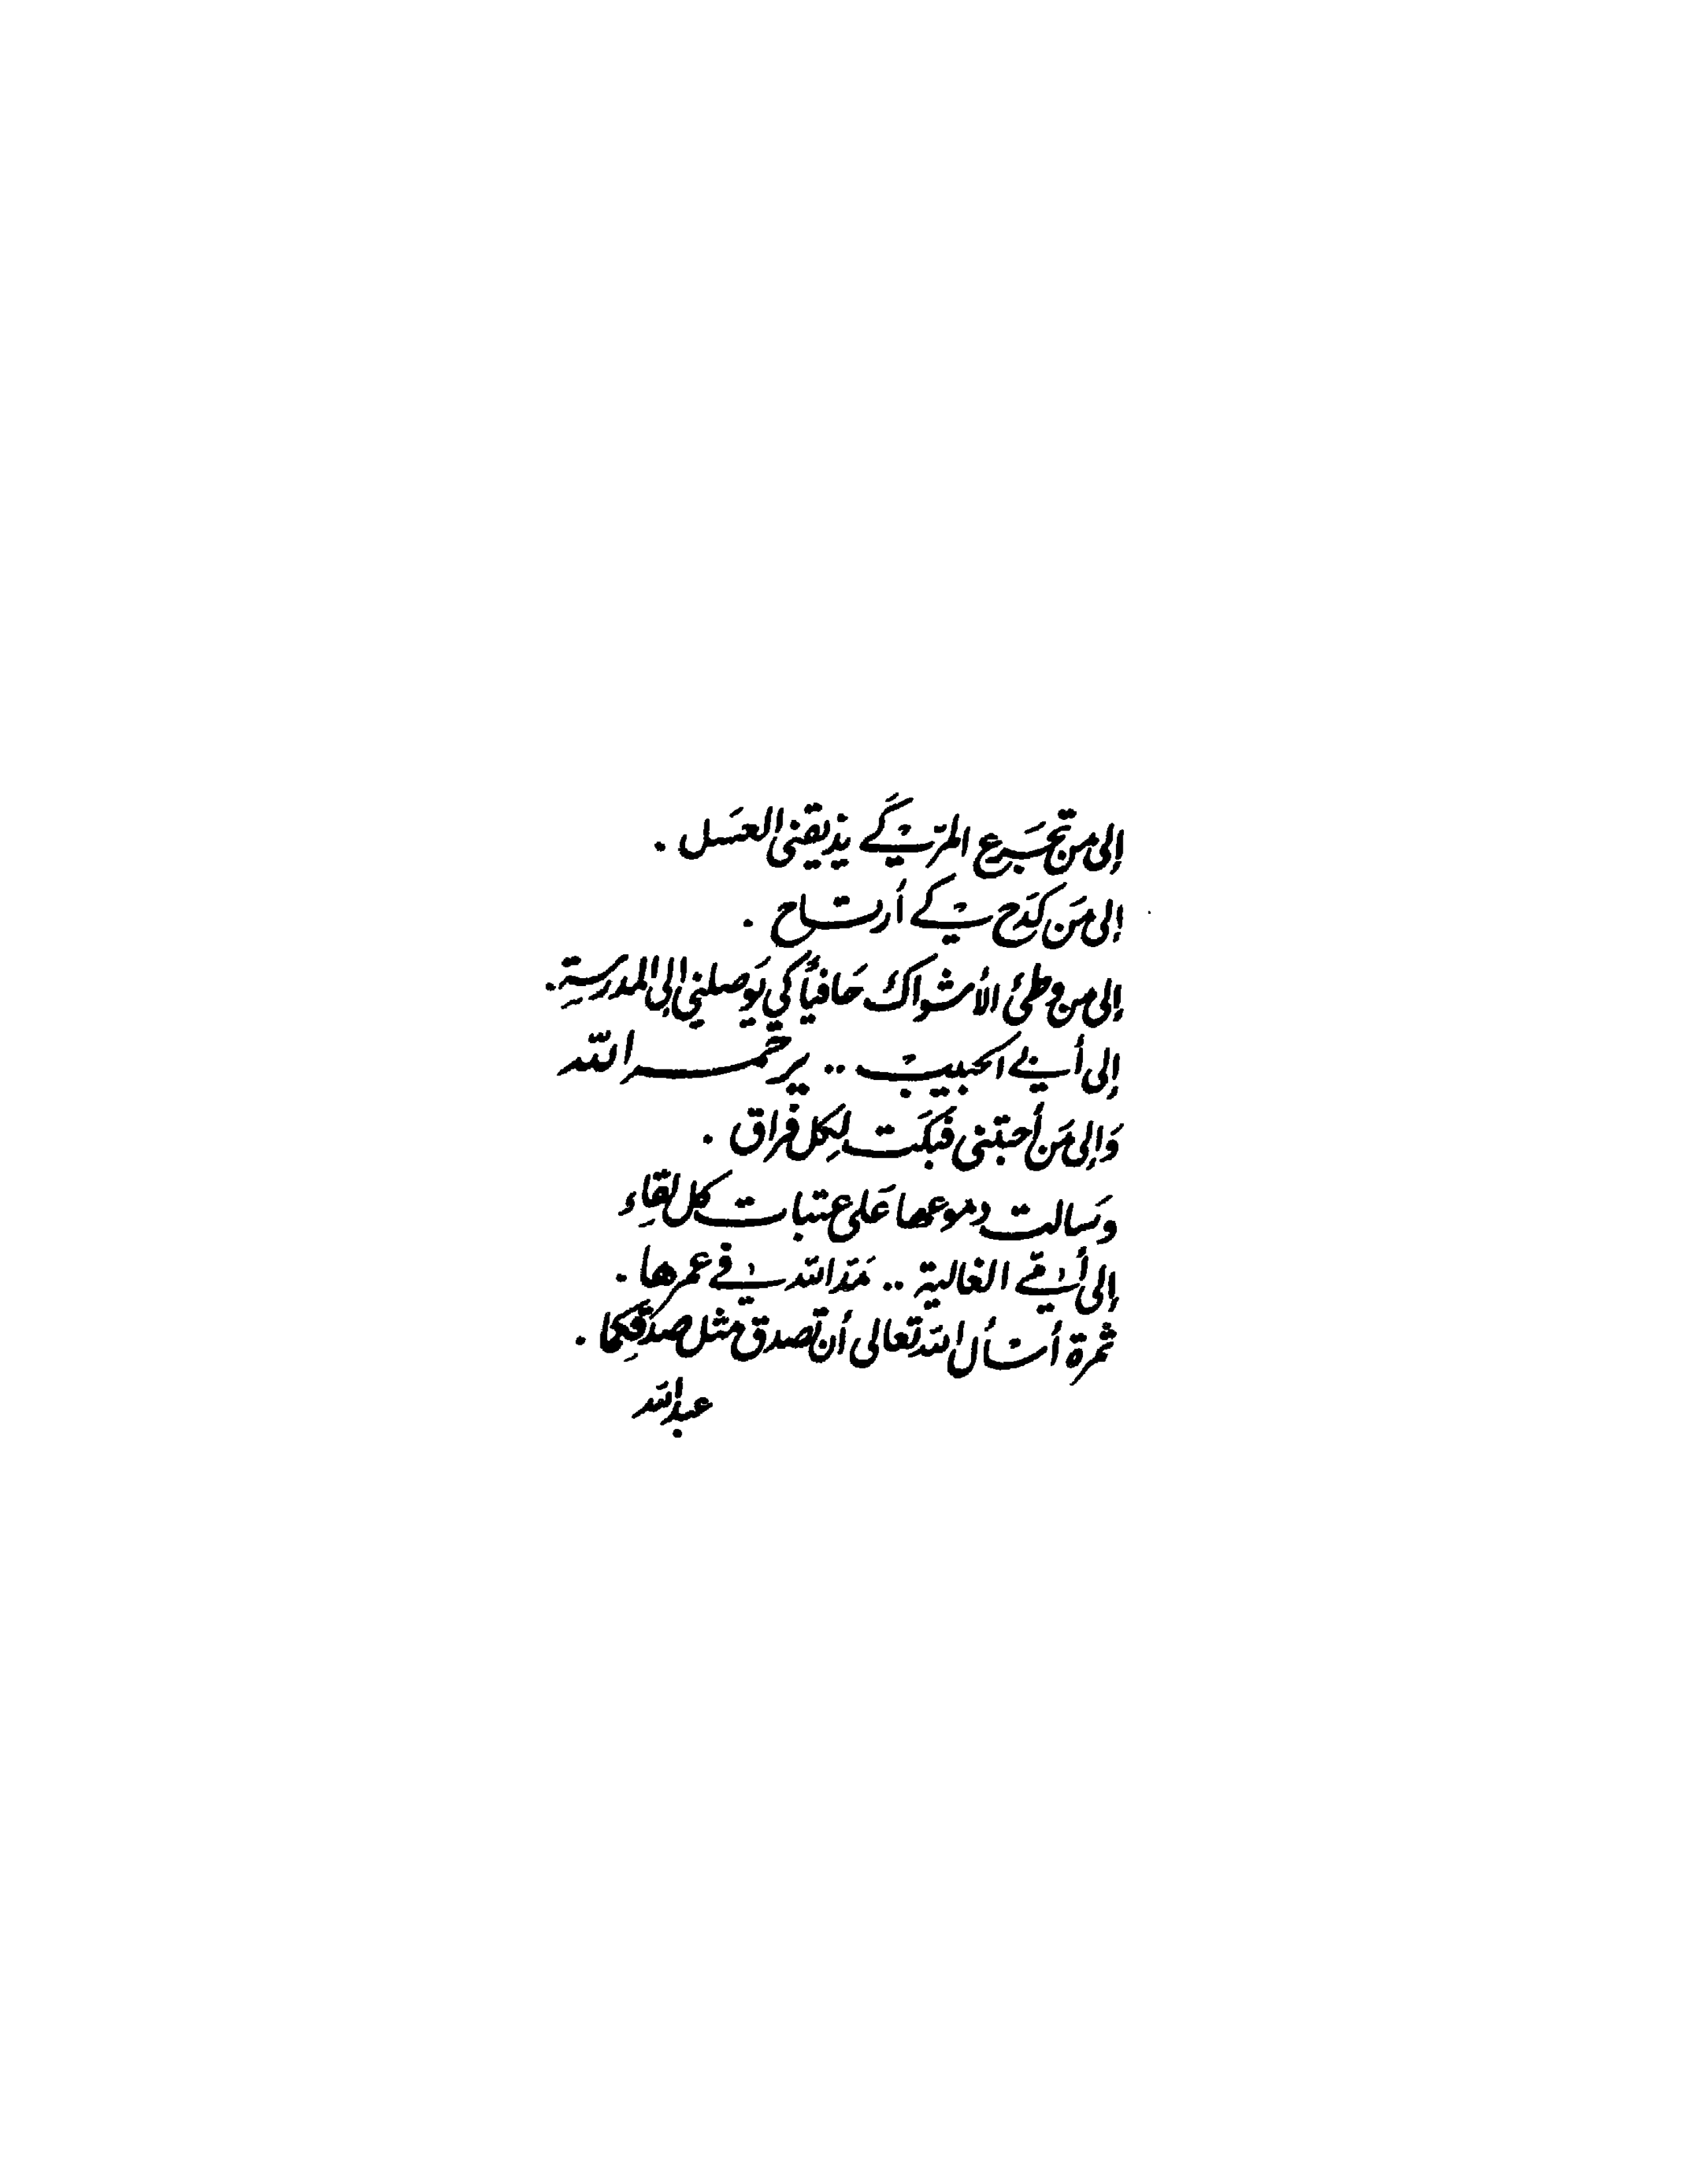 إلى من تجَرع المرّ كَي يذيقني العسَل .
إلى مَن كدَح كي أرتاح .
إلى من وطئ الأشواك حَافيًا كي يوَصلني إلى المدرسَةِ .
إلى أبي الحبيب .. يرحمه اللّه
وَإلى مَن أحبتني فبَكَت لِكل فراق .
وسَالت دموعها عَلى عتبات كل لقاِء
إلى أمي الغالية .. مَدّ اللّه في عمرها .
ثمرة أسأل اللّه تعالى أن تصدق مثل صدقكِما .
عبداللّه